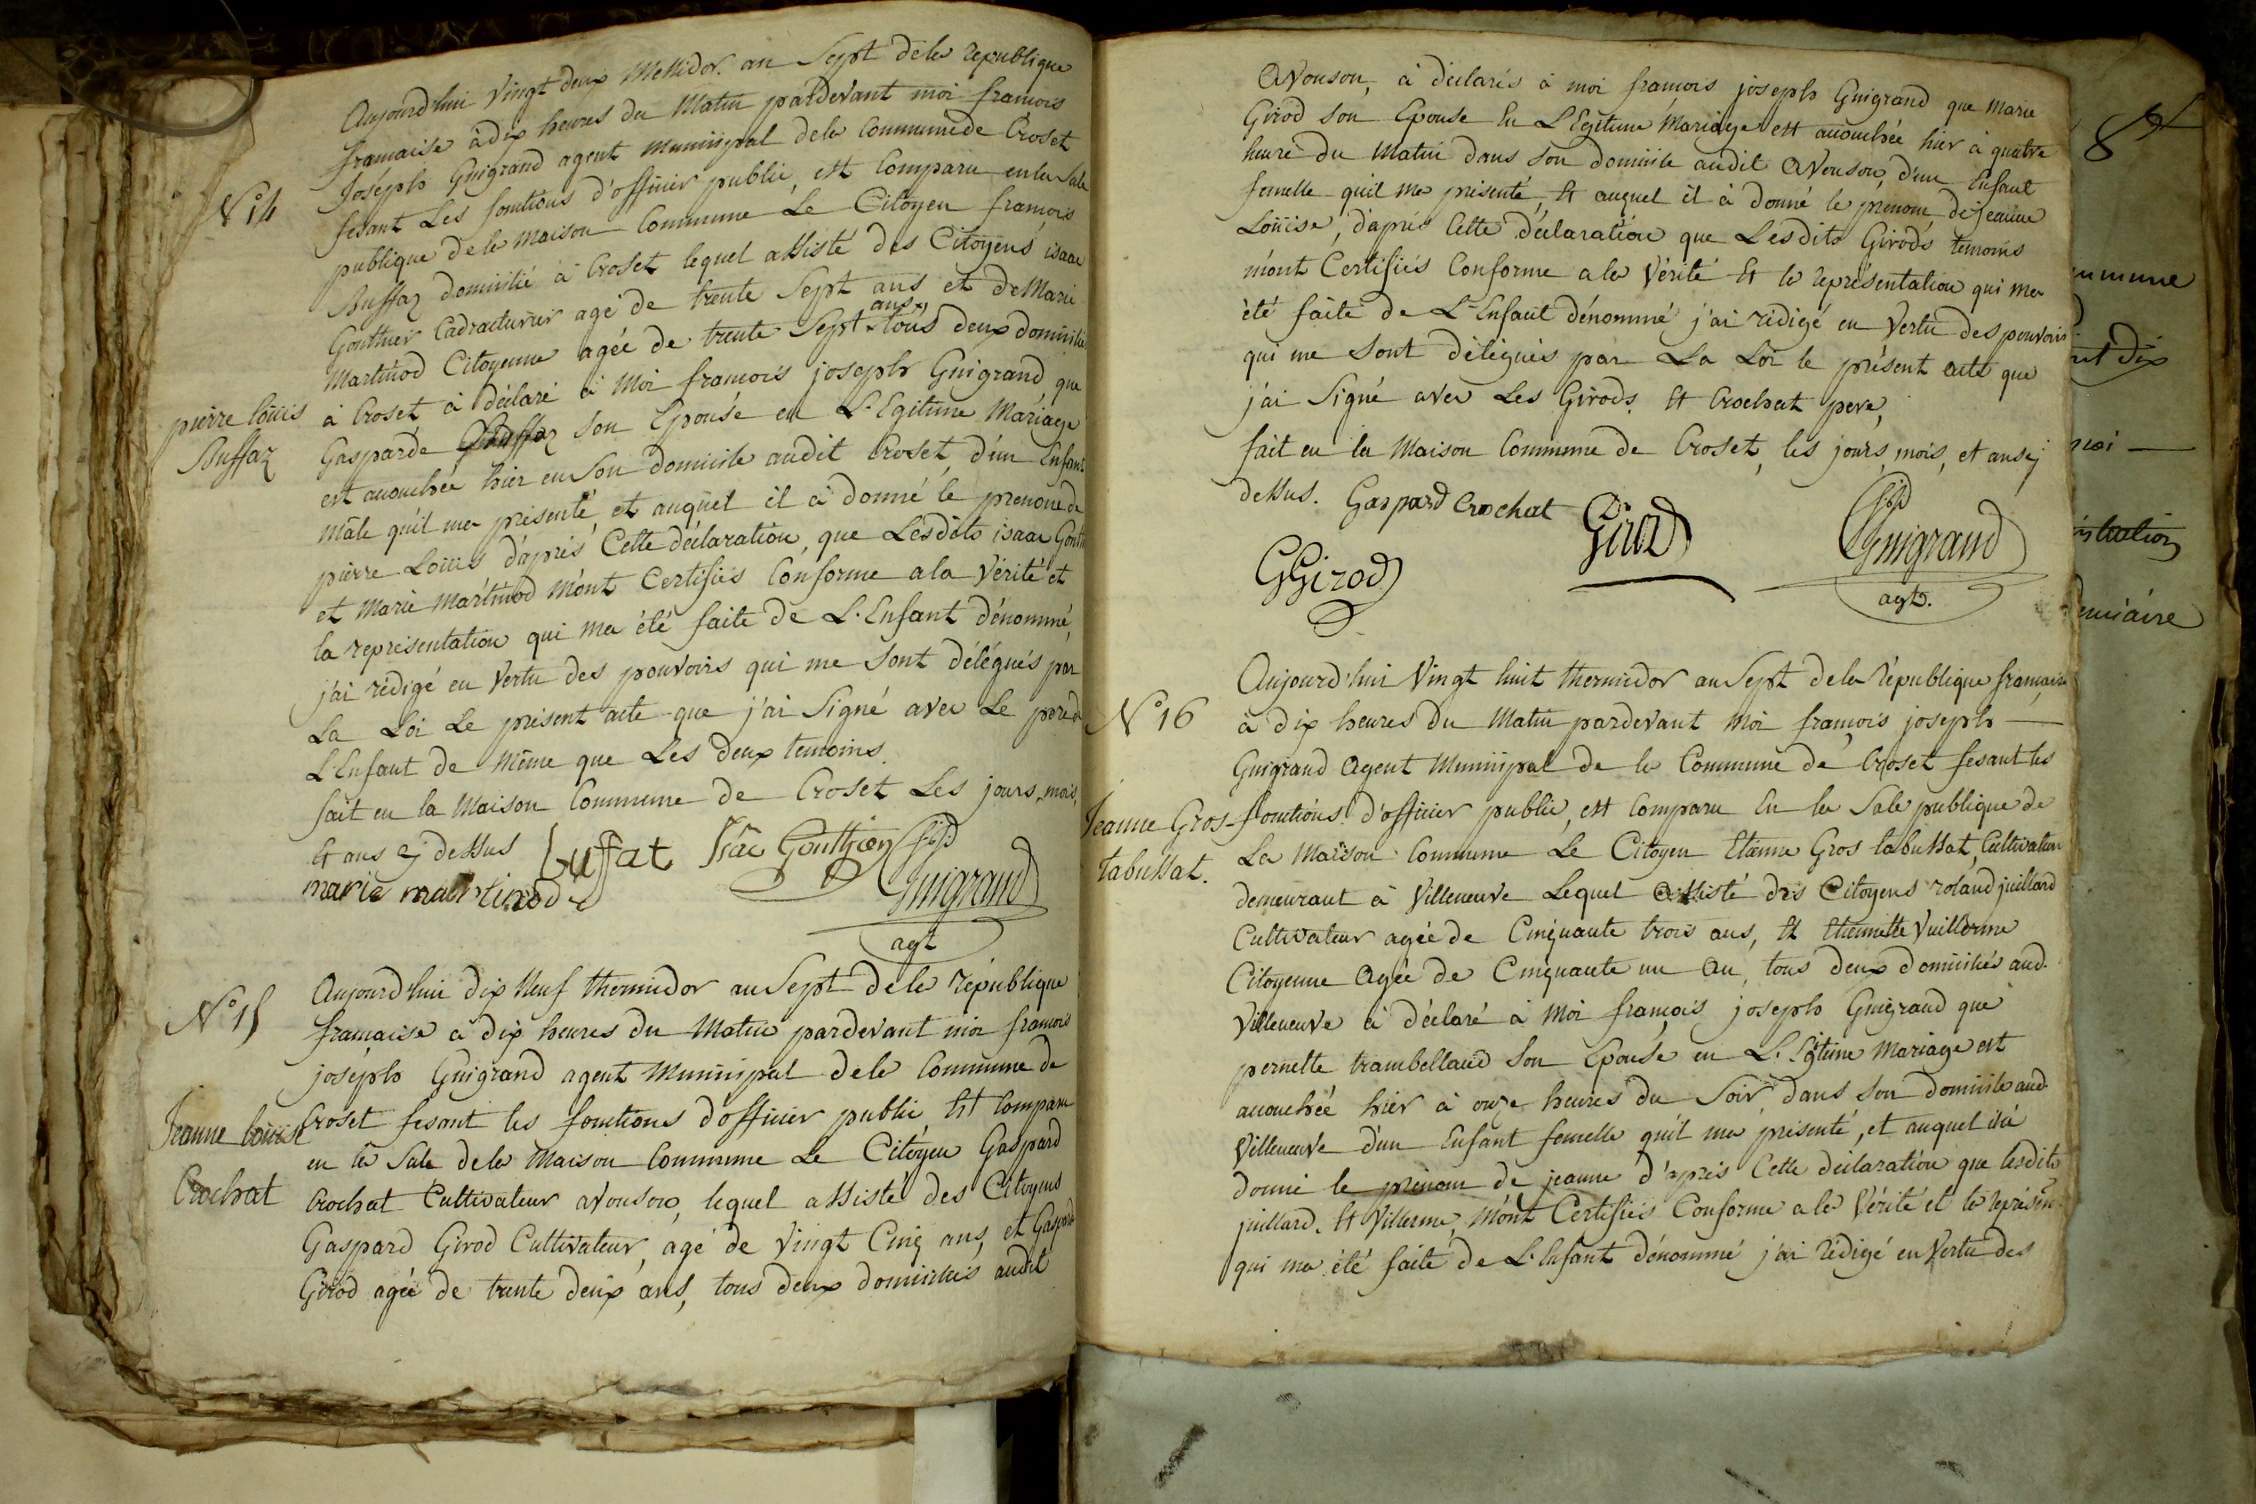 Aujourd'hui Vingt deux Messidor. an Sept de la République
francaise à dix heures du Matin pardevant moi francois
Joseph Guigrand agent Municipal de la Commune de Croset
N° 14
fesant Les fonctions d'officier public, est Comparu en la Sale
publique de la Maison Commune Le Citoyen francois
Buffaz domicilié à Croset lequel assisté des Citoyens isaac
Gonthier agé de trente Sept ans et de Marie
Martinod Citoyenne agée de trente Sept ans tous deux domicilié
à Croset à déclaré à Moi francois joseph Guigrand que
pierre Loüis
Buffaz
Gasparde son Epouse en L'Egitime Mariage
est acouchée hier en Son domicile audit Croset, d'un Enfant
Mâle qu'il ma présenté, et auquel il à donné le prenom de
pierre Loüis d'après Cette déclaration, que Lesdits isaac
et Marie Martinod m'ont Certifiés Conforme a la Vérité et
la representation qui ma été faite de L'Enfant dénommé,
j'ai rédigé en Vertu des pouvoirs qui me Sont délégués par
La Loi Le présent acte que j'ai Signé avec Le pere de
L'Enfant de Même que Les deux temoins.
fait en la Maison Commune de Croset Les jours, mois,
et ans cy dessus
buffat Gonthier
Guigrand
agt
marie martinod
N° 15
Aujourd'hui dix Neuf thermidor an Sept de la République
francaise a dix heures du Matin pardevant moi francois
joseph Guigrand agent Municipal de la Commune de
Jeanne Loüise
Crochat
Croset fesant les fonctions d'officier public Est Comparu
en la Sale de la Maison Commune Le Citoyen Gaspard
Crochat Cultivateur avouson, lequel assisté des Citoyens
Gaspard Girod Cultivateur, agé de Vingt Cinq ans, et Gaspard
Girod agée de trente deux ans, tous deux domiciliés audit
avouson, à déclarés à moi francois joseph Guigrand que Marie
Girod son Epouse En L'Egitime Mariage est acouchée hier à quatre
heure du Matin dans son domicile audit avouson, d'un Enfant
femelle qu'il ma présenté, Et auquel il à donné le prenom de jeanne
Loüise, d'après Cette déclaration que Lesdits Girods temoins
m'ont Certifiés Conforme a la Vérité Et la représentation qui ma
été faite de L'Enfant dénommé j'ai rédigé en Vertu des pouvoirs
qui me Sont délégués par La Loi le présent acte que
j'ai Signé avec Les Girods. Et Crochat pere,
fait en la Maison Commune de Croset, les jours, mois, et an cy
dessus. Gaspard Crochat
Girod
Guigrand
agt.
GGirod
Aujourd'hui Vingt huit thermidor an Sept de la République francaise
N° 16
à dix heures du Matin pardevant Moi francois joseph
Guigrand Agent Municipal de la Commune de Croset fesant les
Jeanne Gros-
tabussat.
fonctions d'officier public, est Comparu En la Sale publique de
La Maison Commune Le Citoyen Etienne Gros tabussat, Cultivateur
demeurant à Villeneuve Lequel assisté des Citoyens roland juillard
Cultivateur agée de Cinquante trois ans, Et Etiennette Vuillerme
Citoyenne agée de Cinquante un an, tous deux domiciliés aud.
Villeneuve à déclaré à Moi francois joseph Guigrand que
pernette trambelland son Epouse en L'Egitime Mariage est
acouchée hier à onze heures du Soir dans son domicile aud.
Villeneuve d'un Enfant femelle qu'il ma présenté, et auquel il à
donné le prénom de jeanne d'après Cette déclaration que lesdits
juillard. Et Villerme, M'ont Certifiés Conforme a la Vérité et la représen.
qui ma été faite de L'Enfant dénommé j'ai rédigé en Vertu des